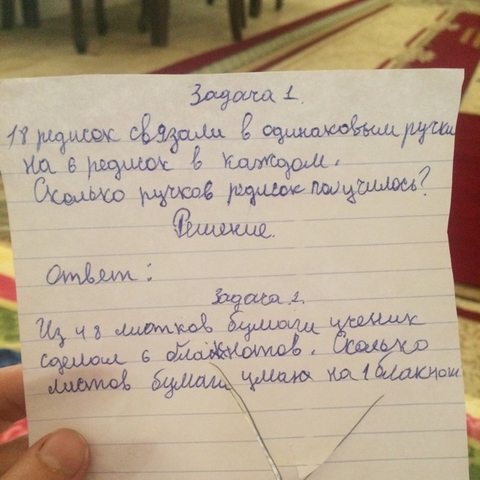 Задача 1.
18 редисок связали в одинаковым ручки
на 6 редисок в каждом.
Сколько ручков редисок получилось?
Решение.
Ответ:
Задача 2.
Из 48 листков бумаги ученик
сделал 6 блакнотов. Сколько
листов бумаги ушло на 1 блакнот